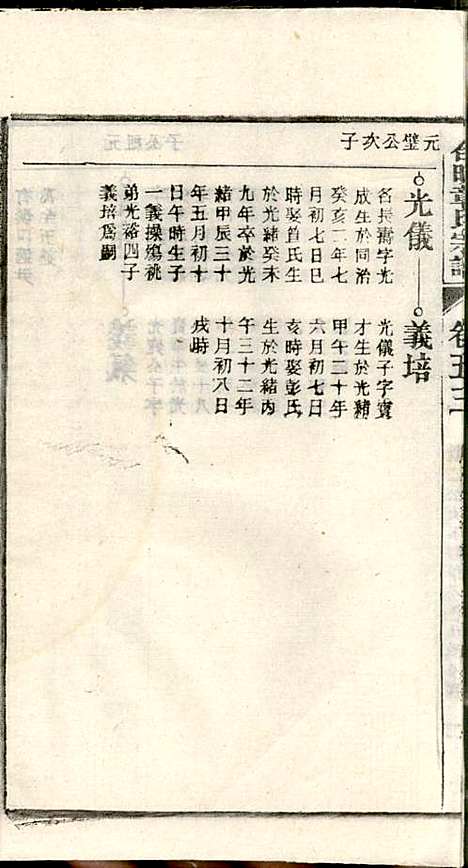 元璧公次子
光儀
名長壽字光
成生於同治
癸亥二年七
月初七日巳
時娶首氏生
於光緒癸未
九年卒於光
緒甲辰三十
年五月初十
日午時生子
一義操殤祧
弟光裕四子
義培爲嗣
義培
光儀子字寶
才生於光緒
甲午二十年
六月初七日
亥時娶彭氏
生於光緒丙
午三十二年
十月初八日
戌時
章氏宗譜
卷五